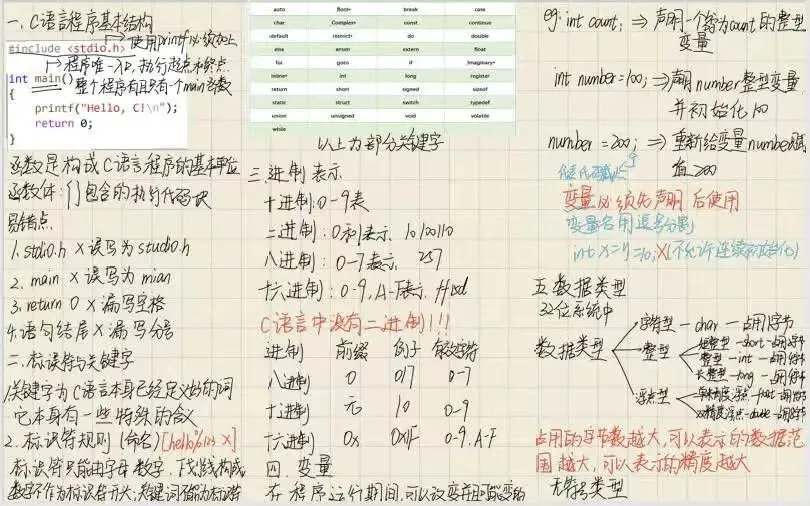 一. C语言程序基本结构
#include <stdio.h> 使用printf必须加上
程序唯一入口,执行起点和终点
int main() 整个程序有且只有一个main函数
{
printf("Hello, C!\n");
return 0;
}
函数是构成C语言程序的基本单位
函数体:{}包含的执行代码块
易错点
1. stdio.h × 误写为studio.h
2. main × 误写为mian
3. return 0 × 漏写空格
4. 语句结尾 × 漏写分号
二. 标识符与关键字
1.关键字为C语言本身已经定义好的词
它本身有一些特殊的含义
2. 标识符规则 (命名) [hello%123 ×]
标识符只能由字母数字、下划线构成
数字不作为标识符开头;关键词不能为标识符
auto Bool• break case
char Complex• const continue
•default restrict• do double
else enum extern float
for goto if Imaginary•
inline• int long register
return short signed sizeof
static struct switch typedef
union unsigned void volatile
while
以上为部分关键字
三.进制表示
十进制:0-9表
二进制:0和1表示. 10100110
八进制:0-7表示. 257
十六进制:0-9. A-F表示.
C语言中没有二进制!!!
进制 前缀 例子 字符
八进制 0 017 0-7
十进制 无 10 0-9
十六进制 0x 0x1F 0-9. A-F
四. 变量
在程序运行期间,可以改变并且可能变的
eg: int count; ⇒ 声明一个名为count的整型
变量
int number=100; ⇒ 声明number整型变量
并初始化
number = 200; ⇒ 重新给变量number赋
值200
变量必须先声明后使用
变量名用逗号分割
int x=y=10; ×(不允许连续初始化)
五 数据类型
32位系统中
数据类型
字符型 — char — 占用1字节
整型
短整型 — short — 占用
整型 — int — 占用
长整型 — long — 占用
浮点型
单精度浮点 — float — 占用
双精度浮点 — double — 占用
占用的字节数越大,可以表示的数据范
围越大,可以表示的精度越大
无符号类型